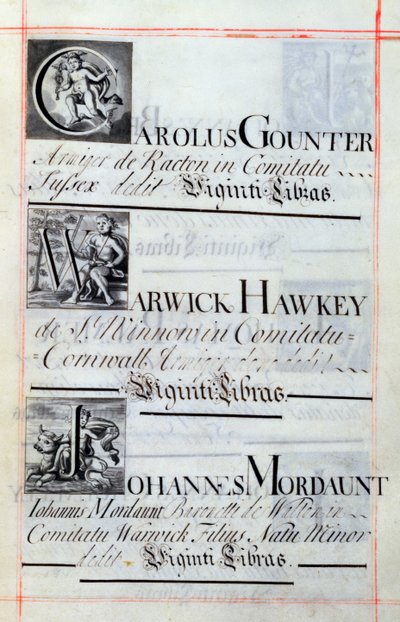 CAROLUS GOUNTER
Armiger de Racton in Comitatu
Sussex dedit Viginti Libras.
WARWICK HAWKEY
de St. Winnon in Comitatu
Cornwall Armiger dedit
Viginti Libras.
JOHANNES MORDAUNT
Iohannis Mordaunt Baronetti de Walton in
Comitatu Warwick Filius Natu Minor
dedit Viginti Libras.